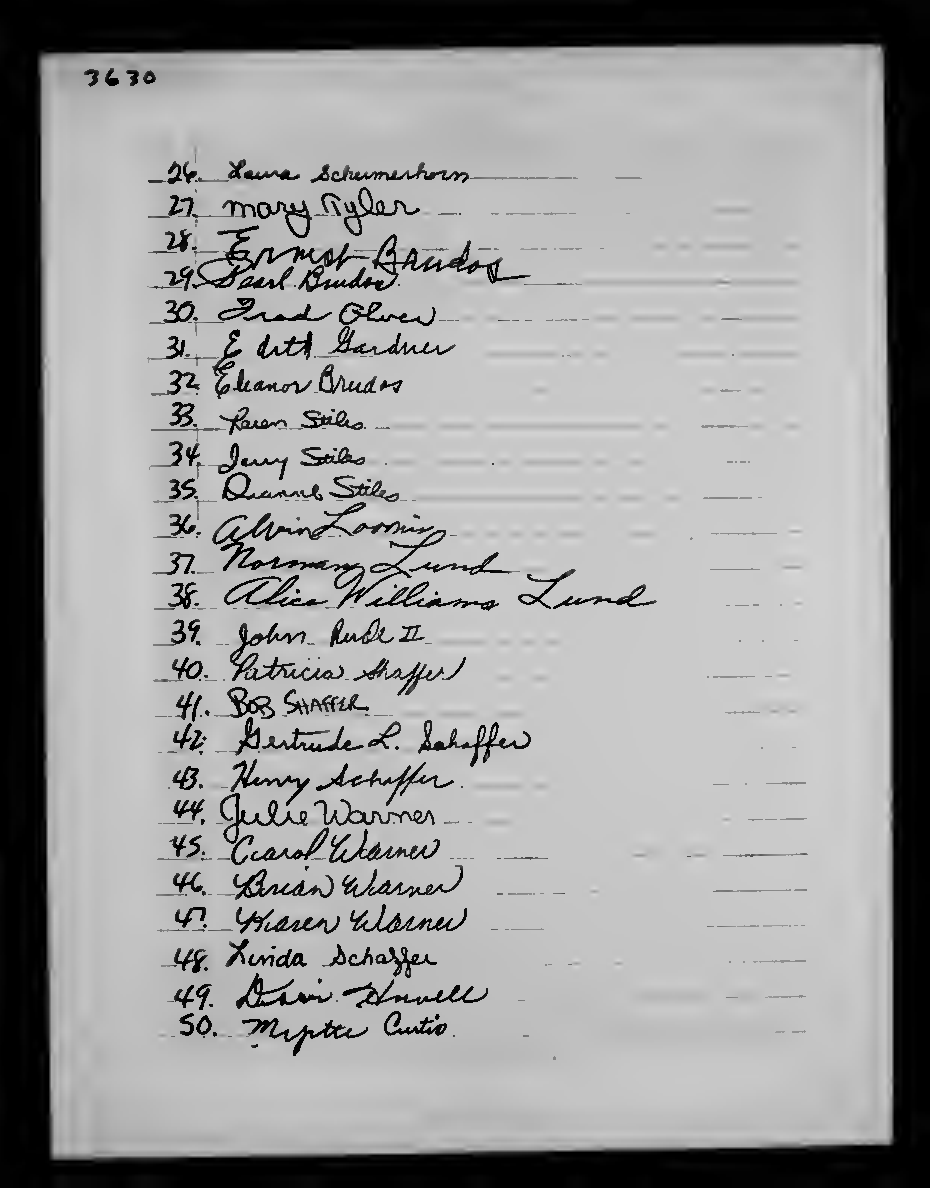 3630
26. Laura Schumerhorn
27. Mary Tyler
28. Ernest Brudos
29. Pearl Brudos
30. Fred Oliver
31. Edith Gardner
32. Eleanor Brudos
33. Karen Stiles
34. Jerry Stiles
35. Dianne Stiles
36. Alvin Loomis
37. Norman Lund
38. Alice Williams Lund
39. John Rude II
40. Patricia Shaffer
41. BOB SHAFFER
42. Gertrude L. Schaffer
43. Henry Schaffer
44. Julie Warner
45. Carol Warner
46. Brian Warner
47. Karen Warner
48. Linda Schaffer
49. Howell
50. Curtis